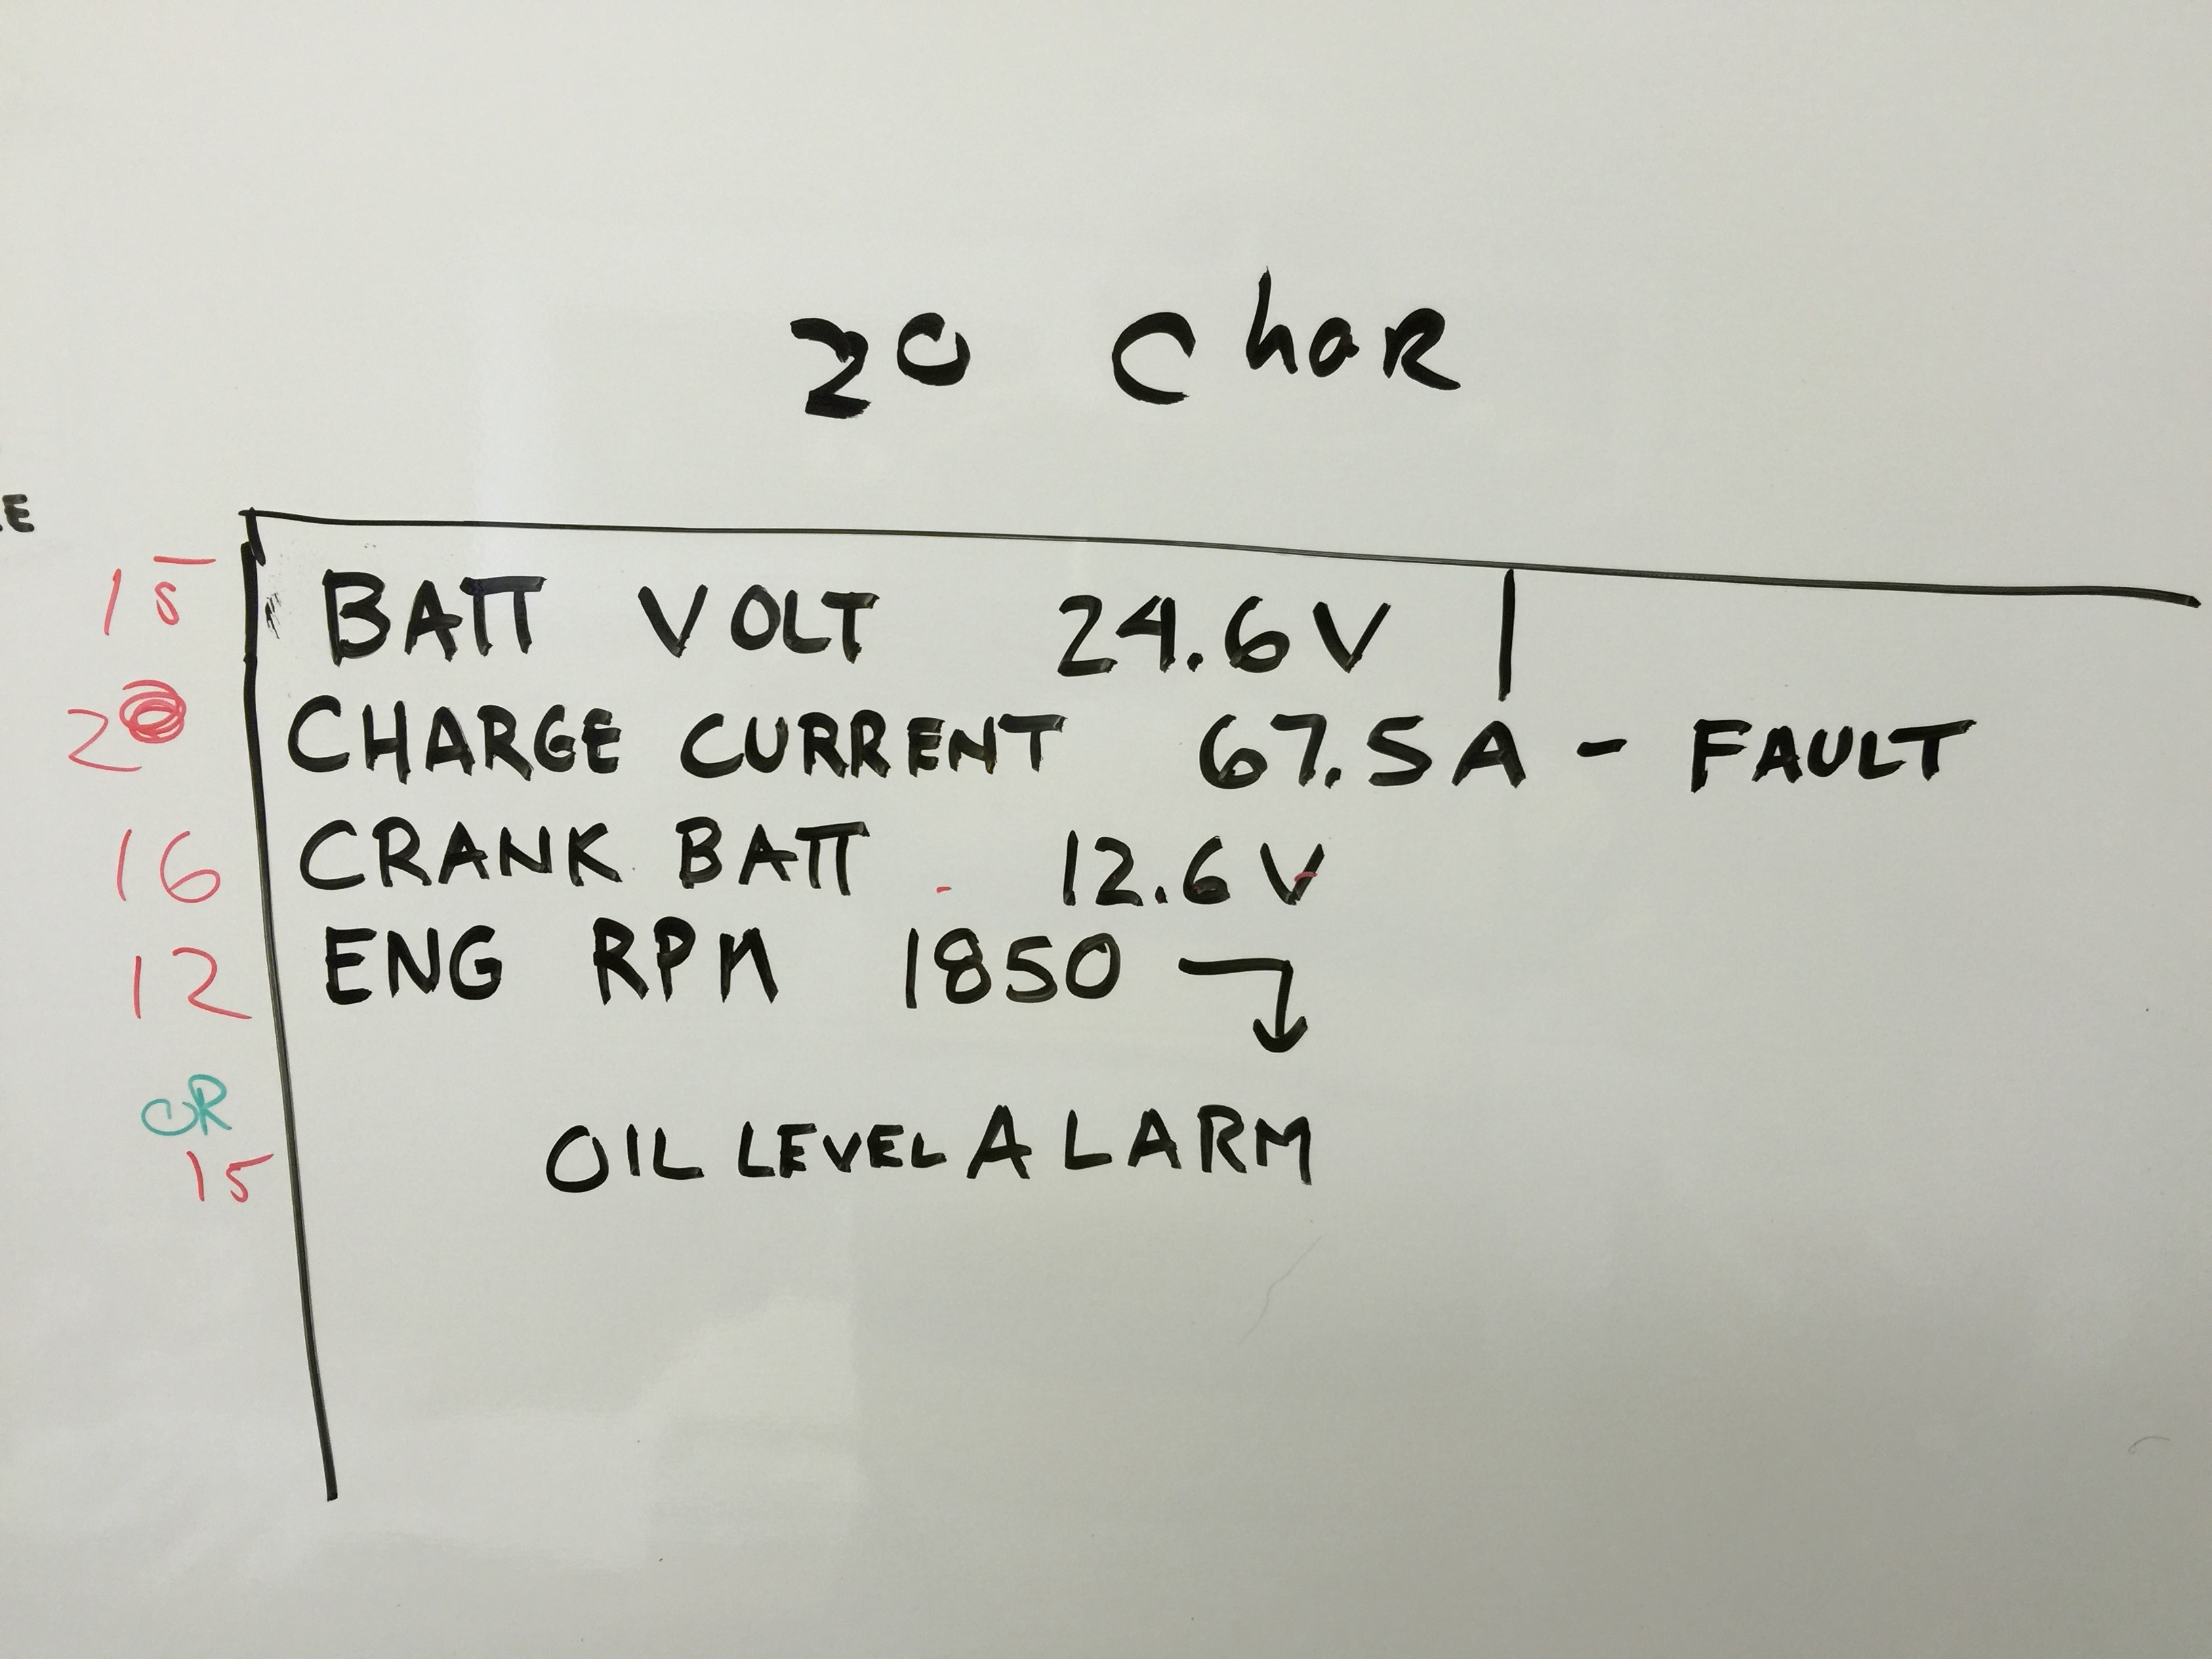 20 Char
E
15 BATT VOLT 24.6V
20 CHARGE CURRENT 67.5A - FAULT
16 CRANK BATT 12.6V
12 ENG RPM 1850
OR
15 OIL LEVEL ALARM